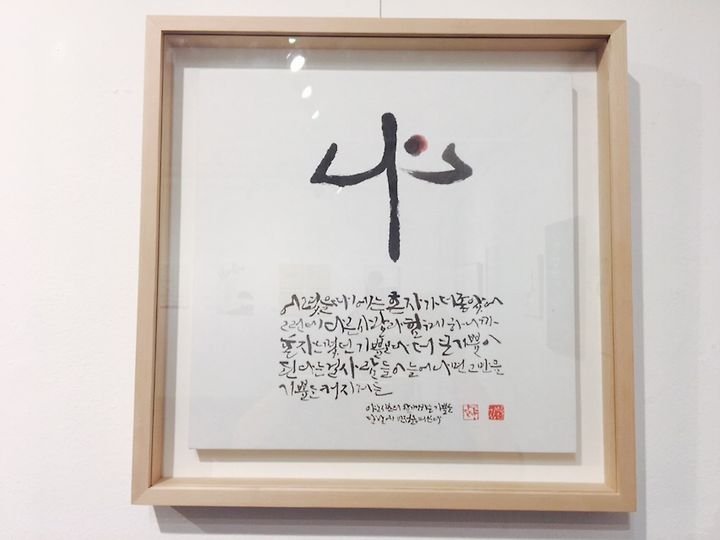 어렸을 때에는 혼자가 더 좋았어
그런데 다른 사람과 함께 하니까
혼자 느꼈던 기쁨보다 더 큰 기쁨이
된다는걸 사람들이 늘어나면 그만큼
기쁨도 커지거든
함께하는 기쁨